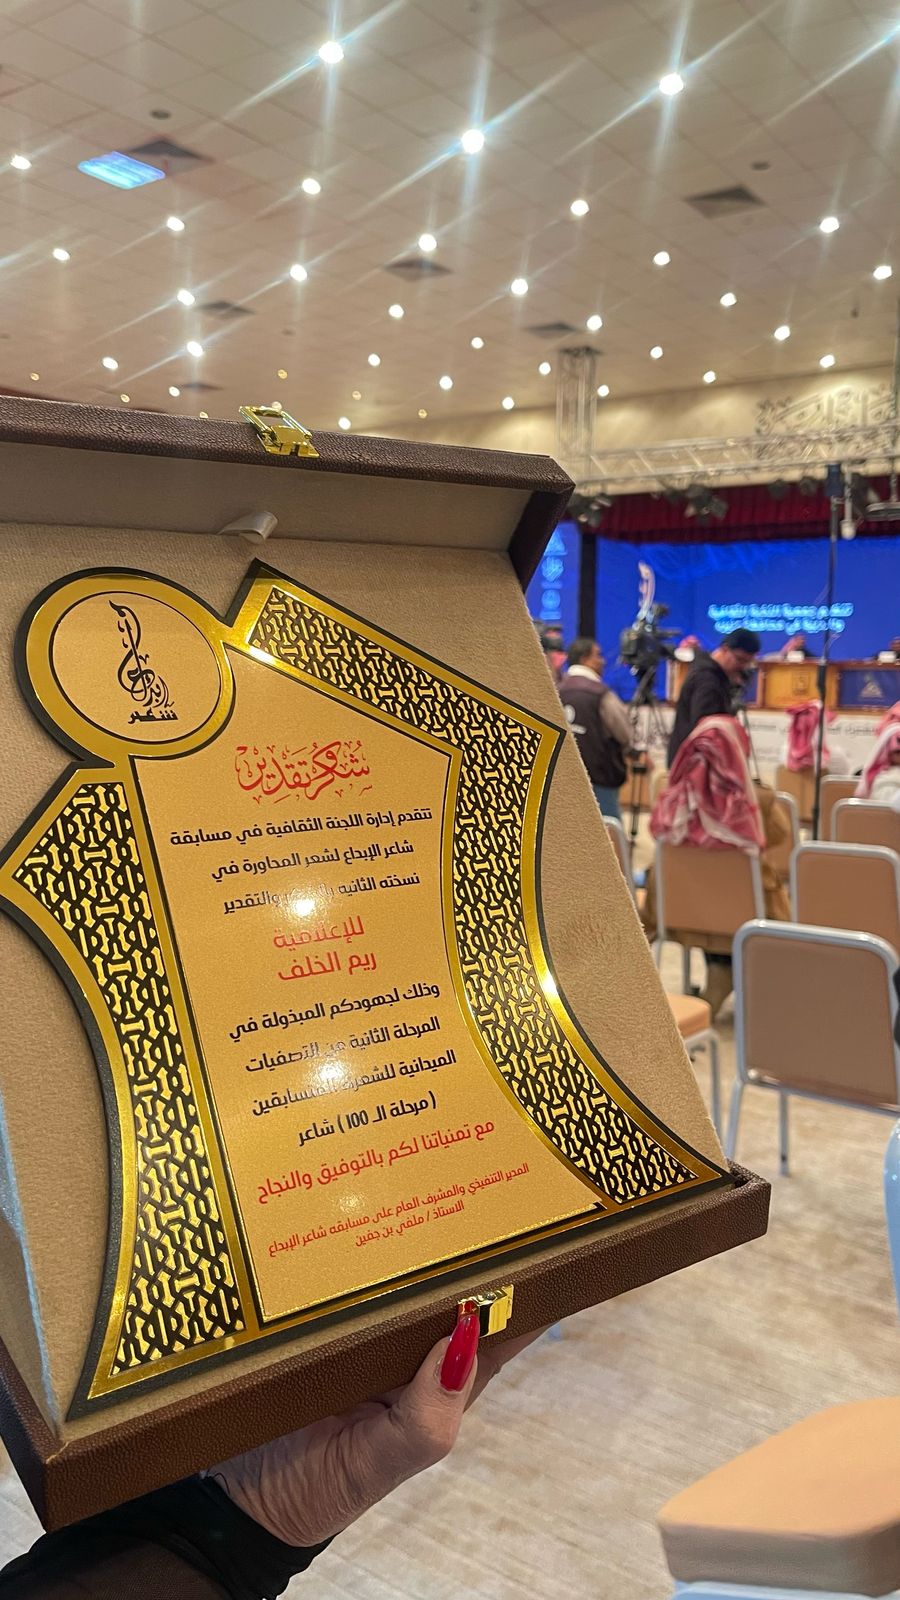 إبداع
شعر
شكر وتقدير
تتقدم إدارة اللجنة الثقافية في مسابقة
شاعر الإبداع لشعر المحاورة في
نسخته الثانيه والتقدير
للإعلامية
ريم الخلف
وذلك لجهودكم المبذولة في
المرحلة الثانية من التصفيات
الميدانية للشعراء المتسابقين
( مرحلة الـ 100 ) شاعر
مع تمنياتنا لكم بالتوفيق والنجاح
المدير التنفيذي والمشرف العام على مسابقه شاعر الإبداع
الاستاذ / ملفي بن جفين